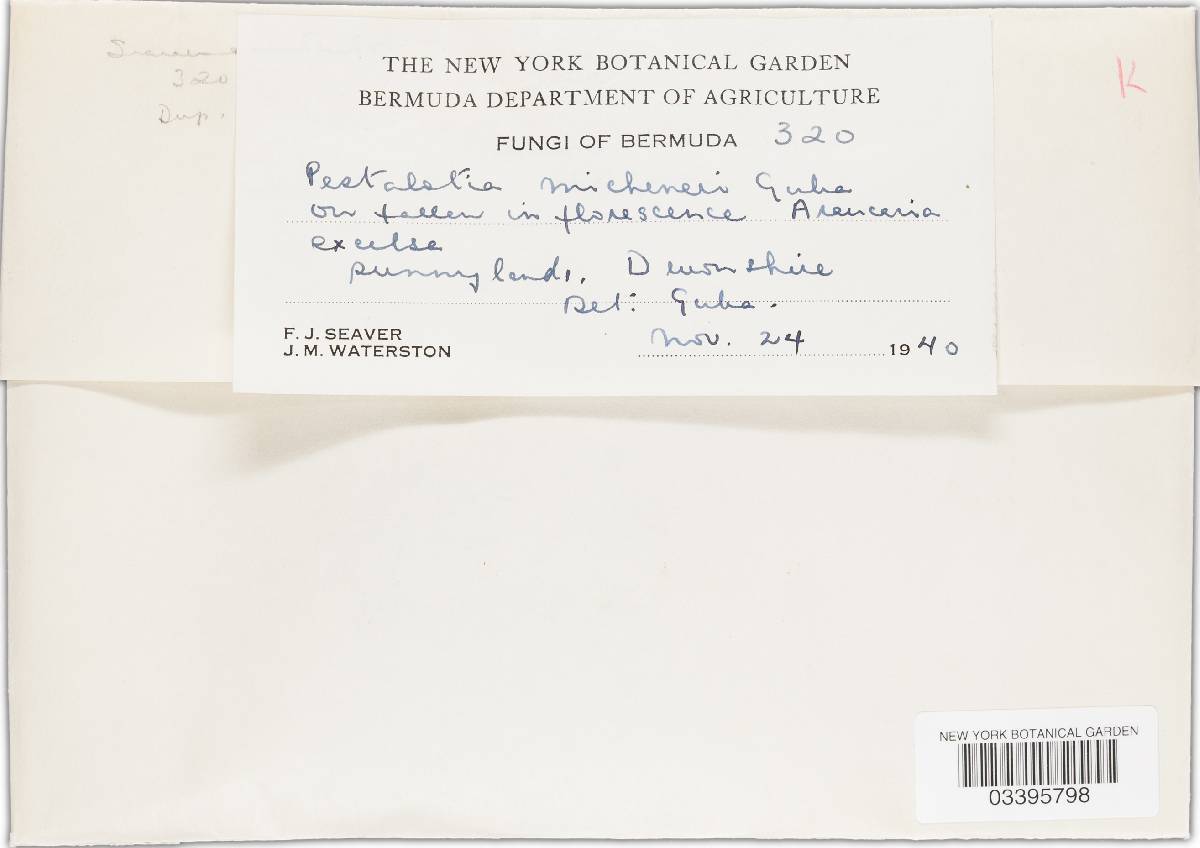 320
Dup.
K
THE NEW YORK BOTANICAL GARDEN
BERMUDA DEPARTMENT OF AGRICULTURE
FUNGI OF BERMUDA 320
Pestalotia micheneri Guba
on fallen in florescence Araucaria
excelsa
Sunnylands, Devonshire
Det: Guba.
F. J. SEAVER
J. M. WATERSTON
Nov. 24 1940
NEW YORK BOTANICAL GARDEN
03395798